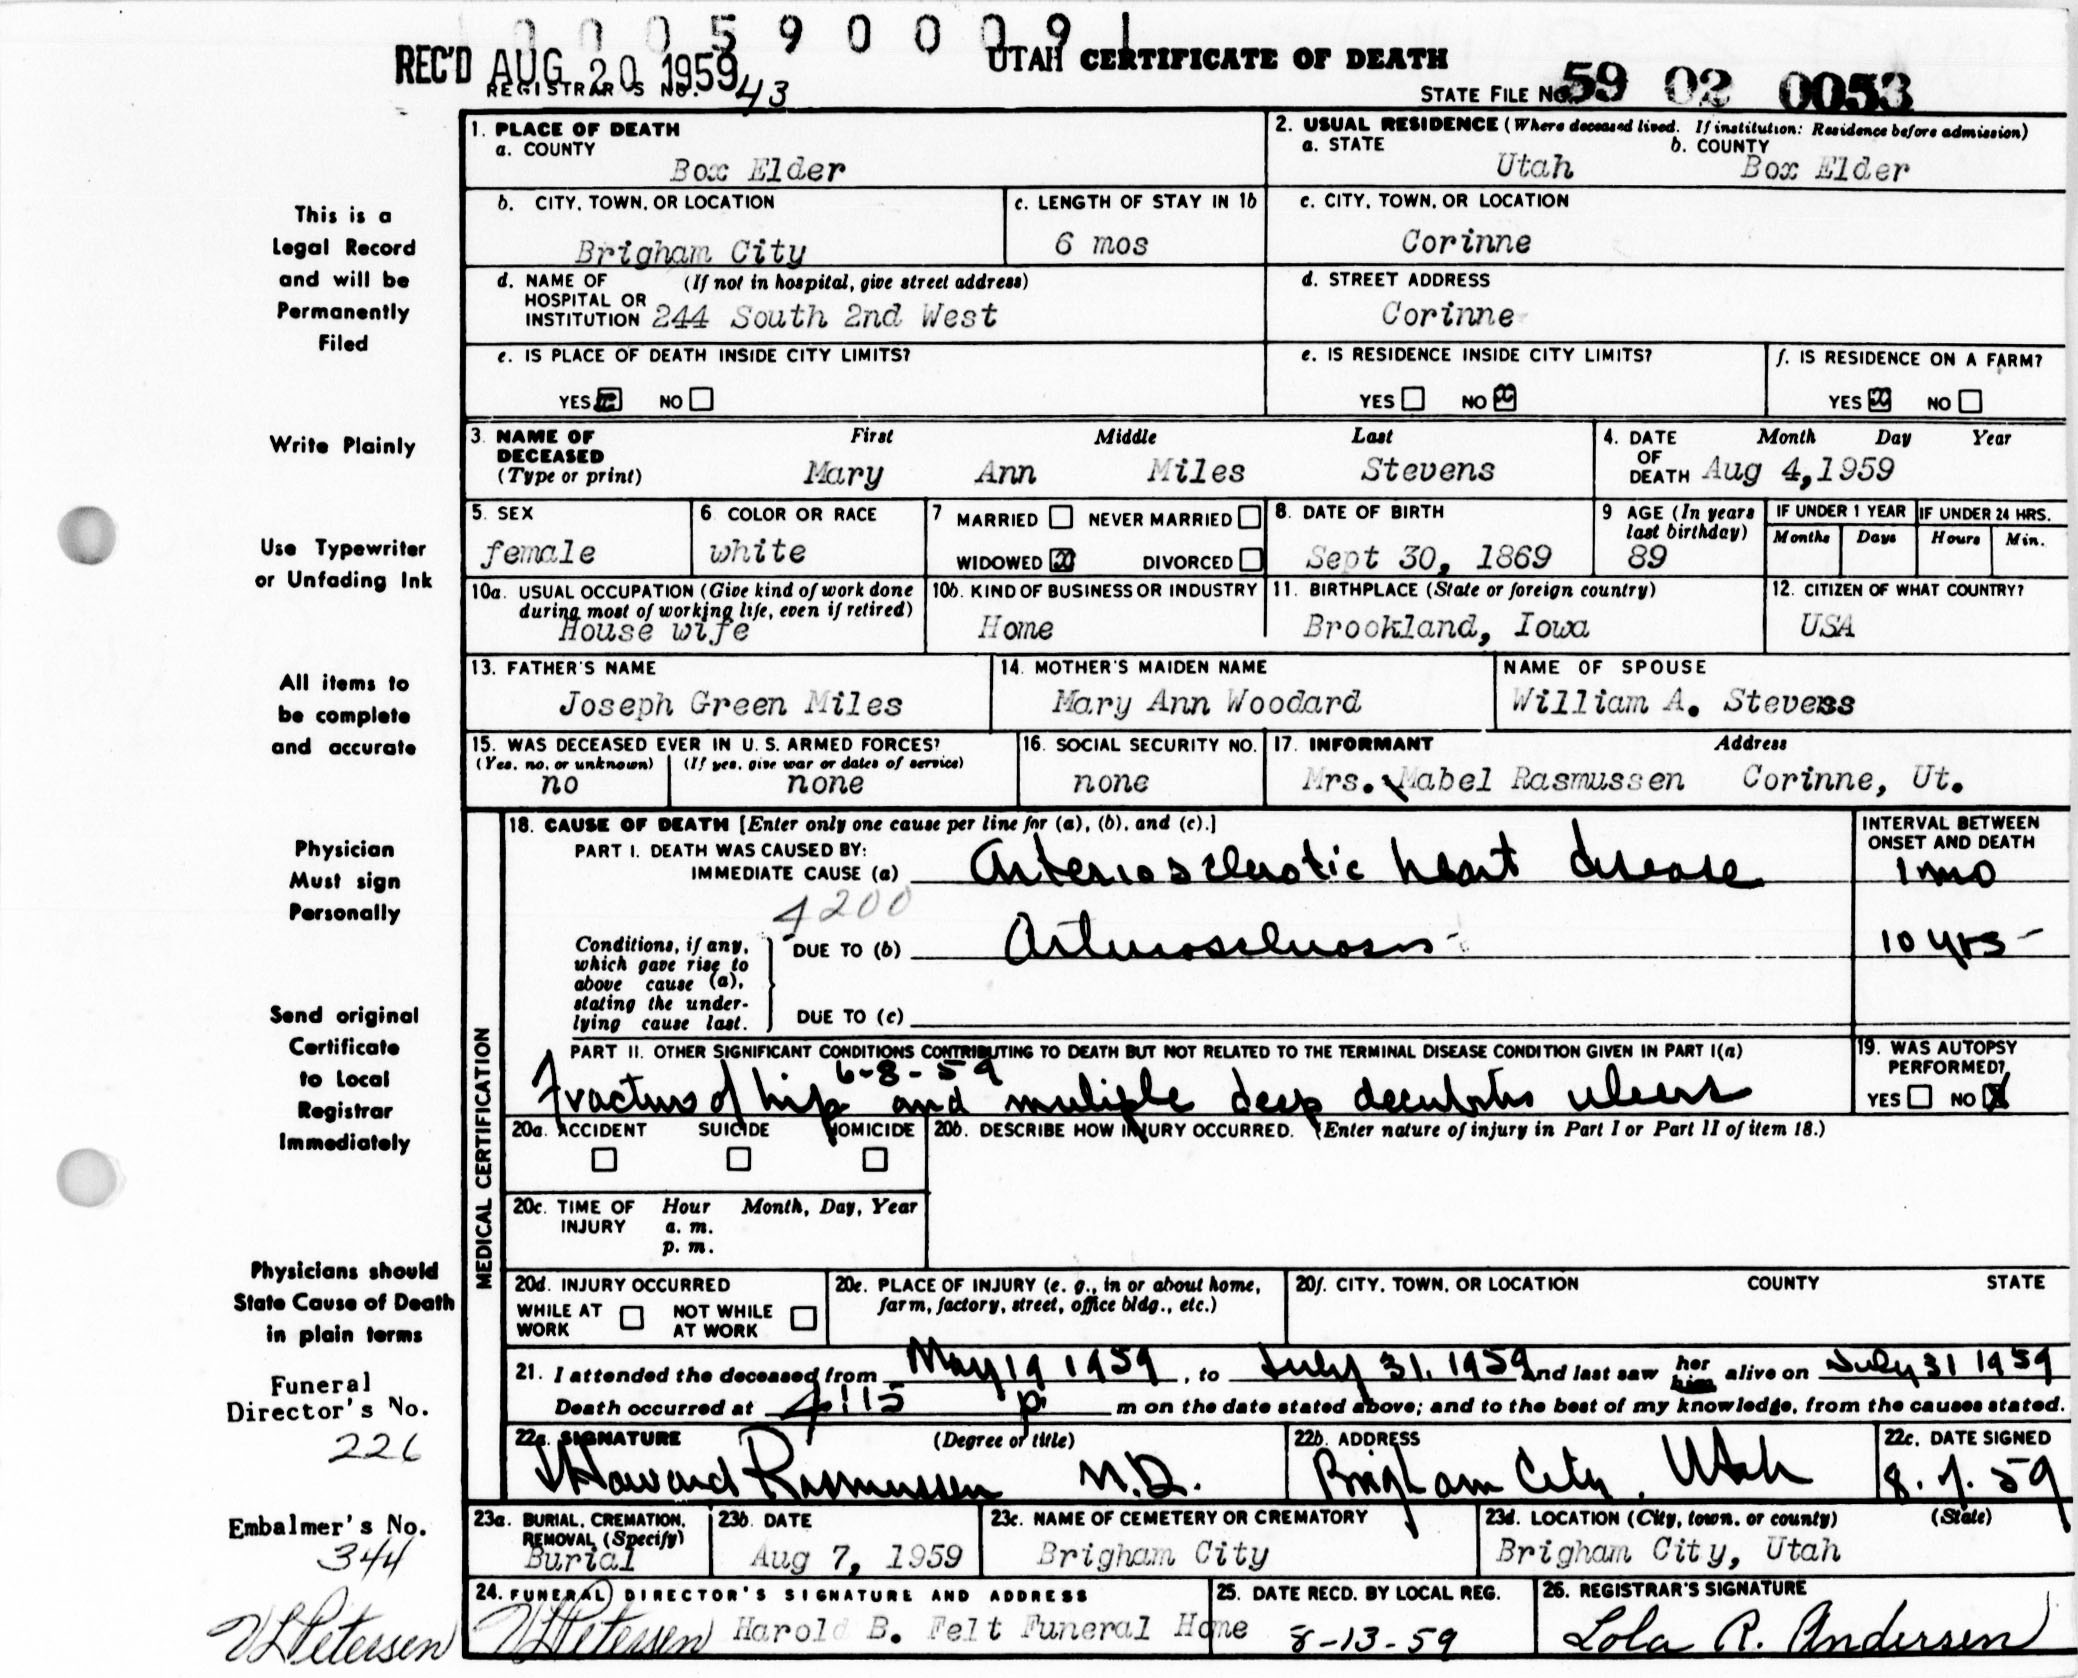 0 0 0 5 9 0 0 0 9 1
REC'D AUG 20 1959 UTAH CERTIFICATE OF DEATH
REGISTRAR'S NO. 43
STATE FILE NO. 59 02 0053
This is a
Legal Record
and will be
Permanently
Filed
Write Plainly
Use Typewriter
or Unfading Ink
All items to
be complete
and accurate
Physician
Must sign
Personally
Send original
Certificate
to Local
Registrar
Immediately
Physicians should
State Cause of Death
in plain terms
Funeral
Director's No.
226
Embalmer's No.
344
V L Petersen
1. PLACE OF DEATH
a. COUNTY
Box Elder
2. USUAL RESIDENCE (Where deceased lived. If institution: Residence before admission)
a. STATE b. COUNTY
Utah Box Elder
b. CITY, TOWN, OR LOCATION
Brigham City
c. LENGTH OF STAY IN 1b
6 mos
c. CITY, TOWN, OR LOCATION
Corinne
d. NAME OF (If not in hospital, give street address)
HOSPITAL OR
INSTITUTION 244 South 2nd West
d. STREET ADDRESS
Corinne
e. IS PLACE OF DEATH INSIDE CITY LIMITS?
YES x NO
e. IS RESIDENCE INSIDE CITY LIMITS?
YES NO x
f. IS RESIDENCE ON A FARM?
YES x NO
3. NAME OF DECEASED
(Type or print)
First Middle Last
Mary Ann Miles Stevens
4. DATE OF DEATH
Month Day Year
Aug 4,1959
5. SEX
female
6. COLOR OR RACE
white
7 MARRIED NEVER MARRIED
WIDOWED x DIVORCED
8. DATE OF BIRTH
Sept 30, 1869
9 AGE (In years
last birthday)
89
IF UNDER 1 YEAR IF UNDER 24 HRS.
Months Days Hours Min.
10a. USUAL OCCUPATION (Give kind of work done
during most of working life, even if retired)
House wife
10b. KIND OF BUSINESS OR INDUSTRY
Home
11. BIRTHPLACE (State or foreign country)
Brookland, Iowa
12. CITIZEN OF WHAT COUNTRY?
USA
13. FATHER'S NAME
Joseph Green Miles
14. MOTHER'S MAIDEN NAME
Mary Ann Woodard
NAME OF SPOUSE
William A. Stevens
15. WAS DECEASED EVER IN U. S. ARMED FORCES?
(Yes, no, or unknown) (If yes, give war or dates of service)
no none
16. SOCIAL SECURITY NO.
none
17. INFORMANT Address
Mrs. Mabel Rasmussen Corinne, Ut.
MEDICAL CERTIFICATION
18. CAUSE OF DEATH [Enter only one cause per line for (a), (b), and (c).]
INTERVAL BETWEEN
ONSET AND DEATH
PART I. DEATH WAS CAUSED BY:
IMMEDIATE CAUSE (a) Arteriosclerotic heart disease 1 mo
4200
Conditions, if any,
which gave rise to
above cause (a),
stating the under-
lying cause last.
DUE TO (b) Arteriosclerosis 10 yrs
DUE TO (c)
PART II. OTHER SIGNIFICANT CONDITIONS CONTRIBUTING TO DEATH BUT NOT RELATED TO THE TERMINAL DISEASE CONDITION GIVEN IN PART I(a)
6-8-59
Fracture of hip and multiple deep decubitus ulcers
19. WAS AUTOPSY
PERFORMED?
YES NO X
20a. ACCIDENT SUICIDE HOMICIDE
20b. DESCRIBE HOW INJURY OCCURRED. (Enter nature of injury in Part I or Part II of item 18.)
20c. TIME OF INJURY
Hour Month, Day, Year
a. m.
p. m.
20d. INJURY OCCURRED
WHILE AT WORK NOT WHILE AT WORK
20e. PLACE OF INJURY (e. g., in or about home,
farm, factory, street, office bldg., etc.)
20f. CITY, TOWN, OR LOCATION COUNTY STATE
21. I attended the deceased from May 19 1959, to July 31, 1959 and last saw her him alive on July 31 1959
Death occurred at 4:15 p m on the date stated above; and to the best of my knowledge, from the causes stated.
22a. SIGNATURE (Degree or title)
Howard Rasmussen M.D.
22b. ADDRESS
Brigham City, Utah
22c. DATE SIGNED
8.7.59
23a. BURIAL, CREMATION,
REMOVAL (Specify)
Burial
23b. DATE
Aug 7, 1959
23c. NAME OF CEMETERY OR CREMATORY
Brigham City
23d. LOCATION (City, town, or county) (State)
Brigham City, Utah
24. FUNERAL DIRECTOR'S SIGNATURE AND ADDRESS
V L Petersen Harold B. Felt Funeral Home
25. DATE RECD. BY LOCAL REG.
8-13-59
26. REGISTRAR'S SIGNATURE
Lola R. Andersen